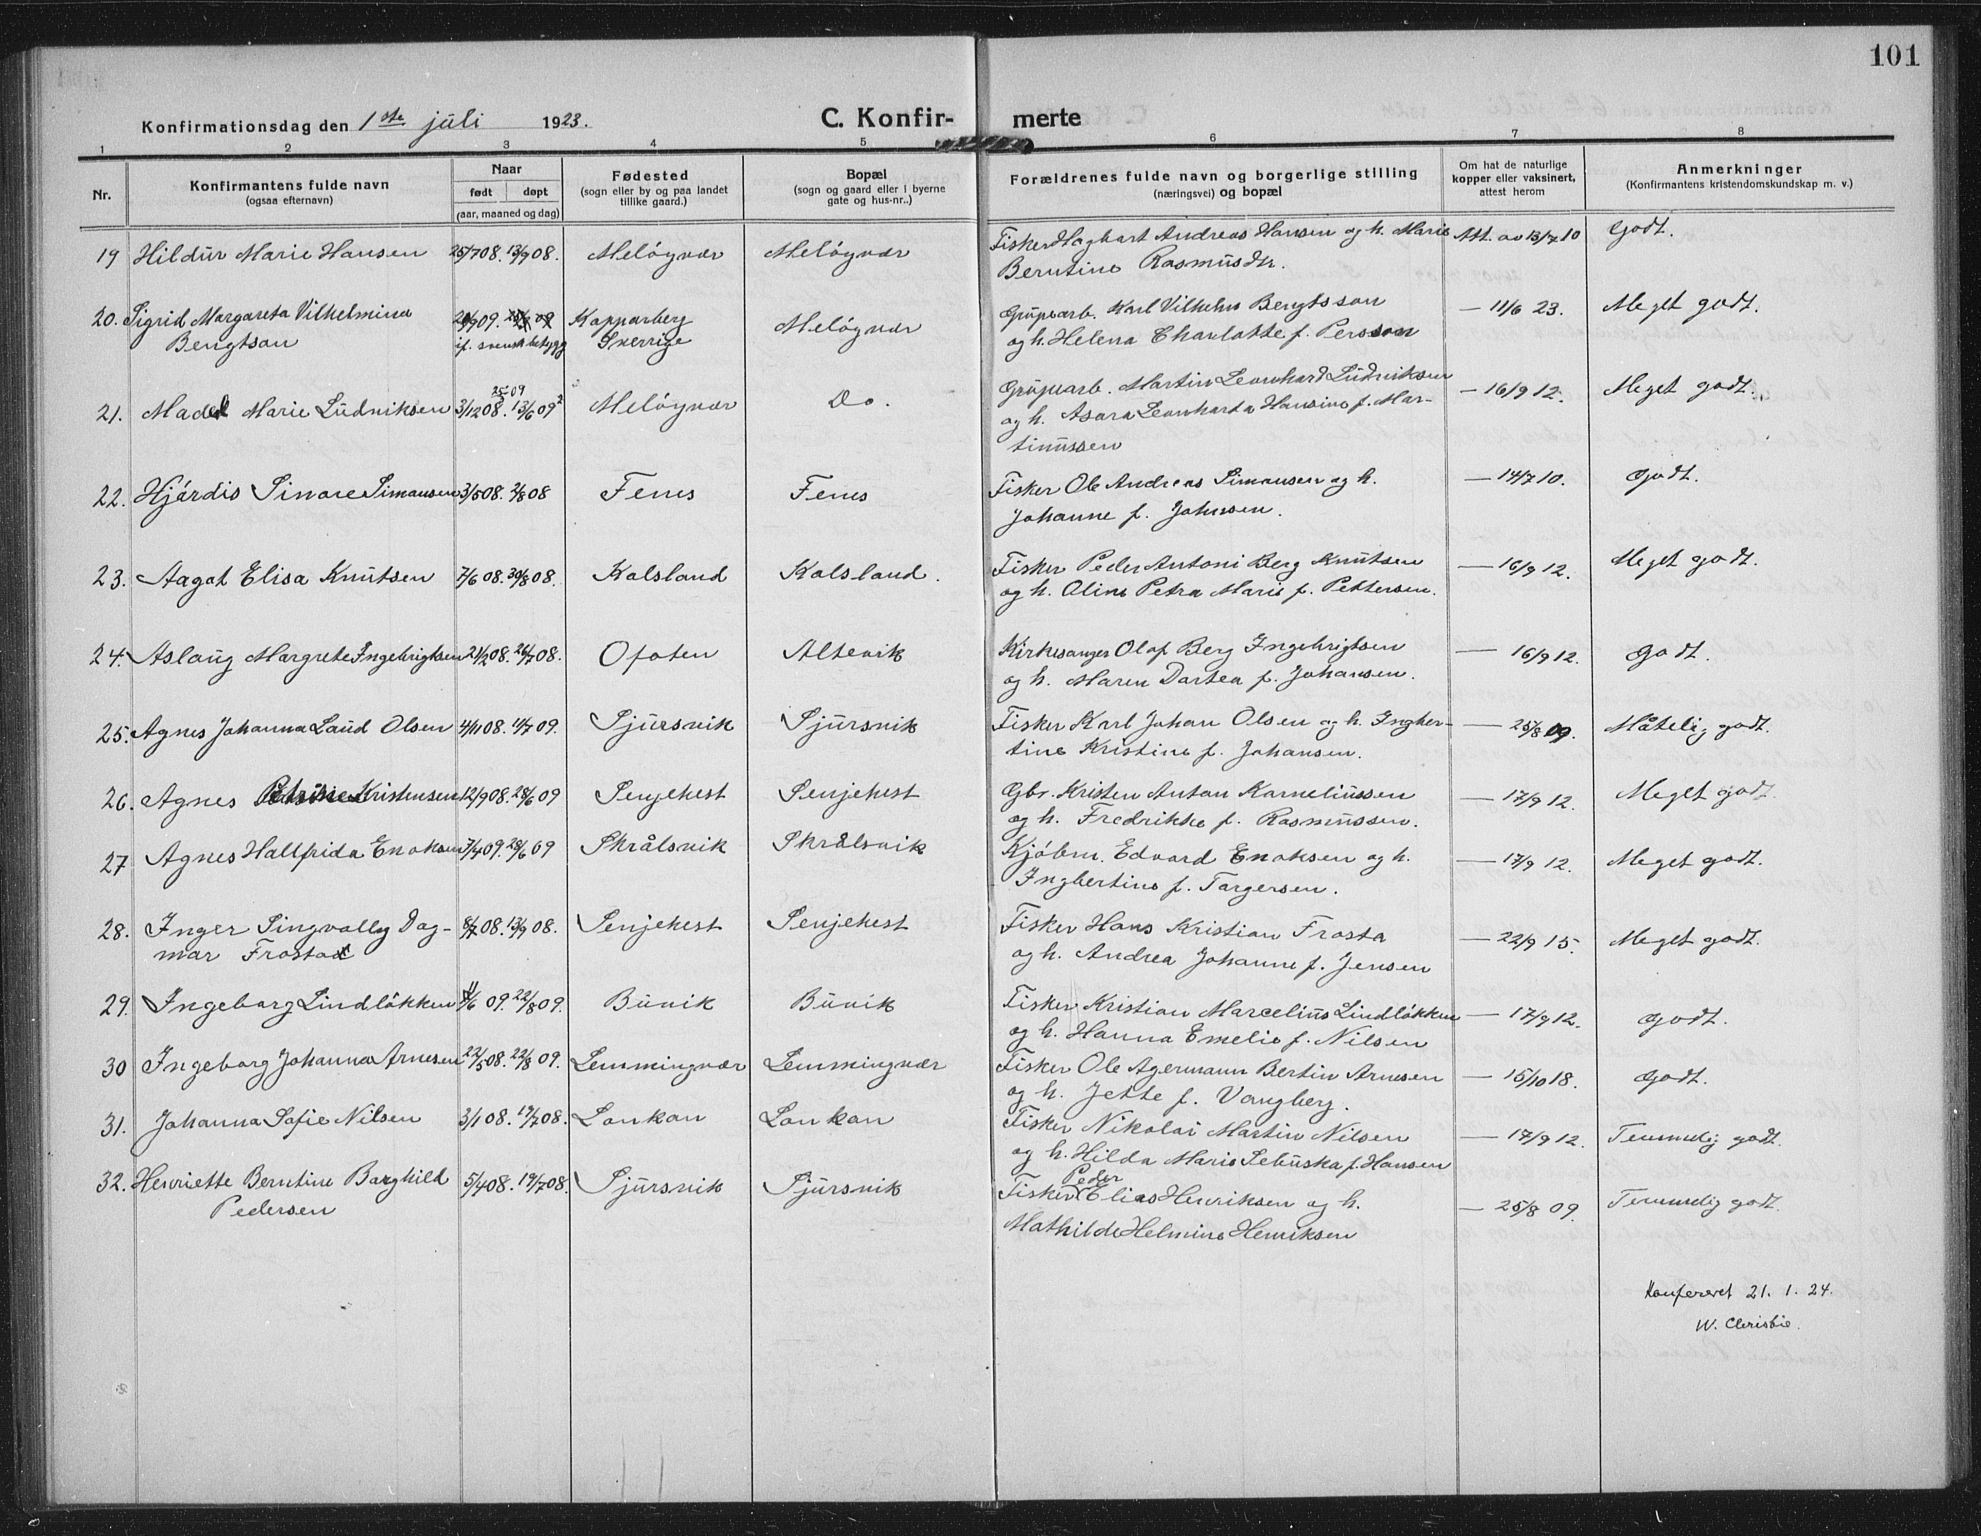 101
Konfirmationsdag den 1ste juli 1923. C. Konfir- merte
1 2 3 4 5 6 7 8
Nr. Konfirmantens fulde navn (ogsaa efternavn) Naar født døpt (aar, maaned og dag) Fødested (sogn eller by og paa landet tillike gaard.) Bopæl (sogn og gaard eller i byerne gate og hus-nr..) Forældrenes fulde navn og borgerlige stilling (næringsvei) og bopæl Om hat de naturlige kopper eller vaksinert, attest herom Anmerkninger (Konfirmantens kristendomskundskap m. v.)
19 Hildur Marie Hansen 25/7 08. 13/9 08. Meløyvær Meløyvær Fisker Hagbart Andreas Hansen og h. Marie Att. av 13/7 10 Godt.
Berntine Rasmusdtr.
20. Sigrid Margareta Vilhelmina Kopparberg Meløyvær Grubearb. Karl Vilhelm Bengtsson — 11/6 23. Meget godt.
Bengtson if. svensk Sverrige og h. Helena Charlotte f. Persson
21. Marie Ludviksen 3/12 08. 13/6 09 Meløyvær Do. Grubearb. Martin Leonhard Ludviksen — 16/9 12. Meget godt.
og h. Asora Leonharda Hansine f. Mar-
tinussen
22. Hjørdis Simonsen 3/5 08. 2/8 08 Fenes Fenes Fisker Ole Andreas Simonsen og h. — 14/7 10. Godt.
Johanne f. Johnsen.
23. Aagot Elisa Knutsen 7/6 08. 30/8 08. Kalsland Kalsland. Fisker Peder Antoni Berg Knutsen — 16/9 12. Meget godt.
og h. Oline Petra Marie f. Pettersen.
24. Aslaug Margrete Ingebrigtsen 21/2 08. 26/7 08. Ofoten Altevik Kirkesanger Olaf Berg Ingebrigtsen — 16/9 12. Godt.
og h. Maren Dortea f. Johansen.
25. Agnes Johanna Olsen 4/11 08. 11/7 09. Sjursvik Sjursvik Fisker Karl Johan Olsen og h. Ingber- — 25/8 09. Måtelig godt.
tine Kristine f. Johansen.
26. Agnes Kristensen 12/9 08. 28/6 09 Senjehest Senjehest Gbr. Kristen Anton Korneliussen — 17/9 12. Meget godt.
og h. Fredrikke f. Rasmussen.
27 Agnes Hallfrida Enoksen 7/4 09. 28/6 09 Skrålsvik Skrålsvik Kjøbm. Edvard Enoksen og h. — 17/9 12. Meget godt.
Ingbertine f. Torgersen.
28. Inger Singvally Dag- 8/7 08. 13/9 08. Senjehest Senjehest Fisker Hans Kristian Frosta — 22/9 15. Meget godt.
mar Frosta og h. Andrea Johanne f. Jensen
29. Ingeborg Lindløkken 09. 22/8 09. Buvik Buvik Fisker Kristian Marcelius Lindløkken — 17/9 12. Godt.
og h. Hanna Emelie f. Nilsen
30 Ingeborg Johanna Arnesen 22/5 08. 22/8 09. Lemmingvær Lemmingvær Fisker Ole Agermann Bertin Arnesen — 15/10 18. Godt.
og h. Jette f. Vangberg.
31. Johanna Sofie Nilsen 3/1 08. 19/7 08. Lonkan Lonkan Fisker Nikolai Martin Nilsen — 17/9 12. Temmelig godt.
og h. Hilda Marie f. Hansen
32. Henriette Berntine Borghild 5/4 08. 19/7 08. Sjursvik Sjursvik Fisker Peder Elias Henriksen og h. — 25/8 09. Temmelig godt.
Pedersen Mathilde Helmine Henriksen
Konfereret 21. 1. 24.
W. Christie.